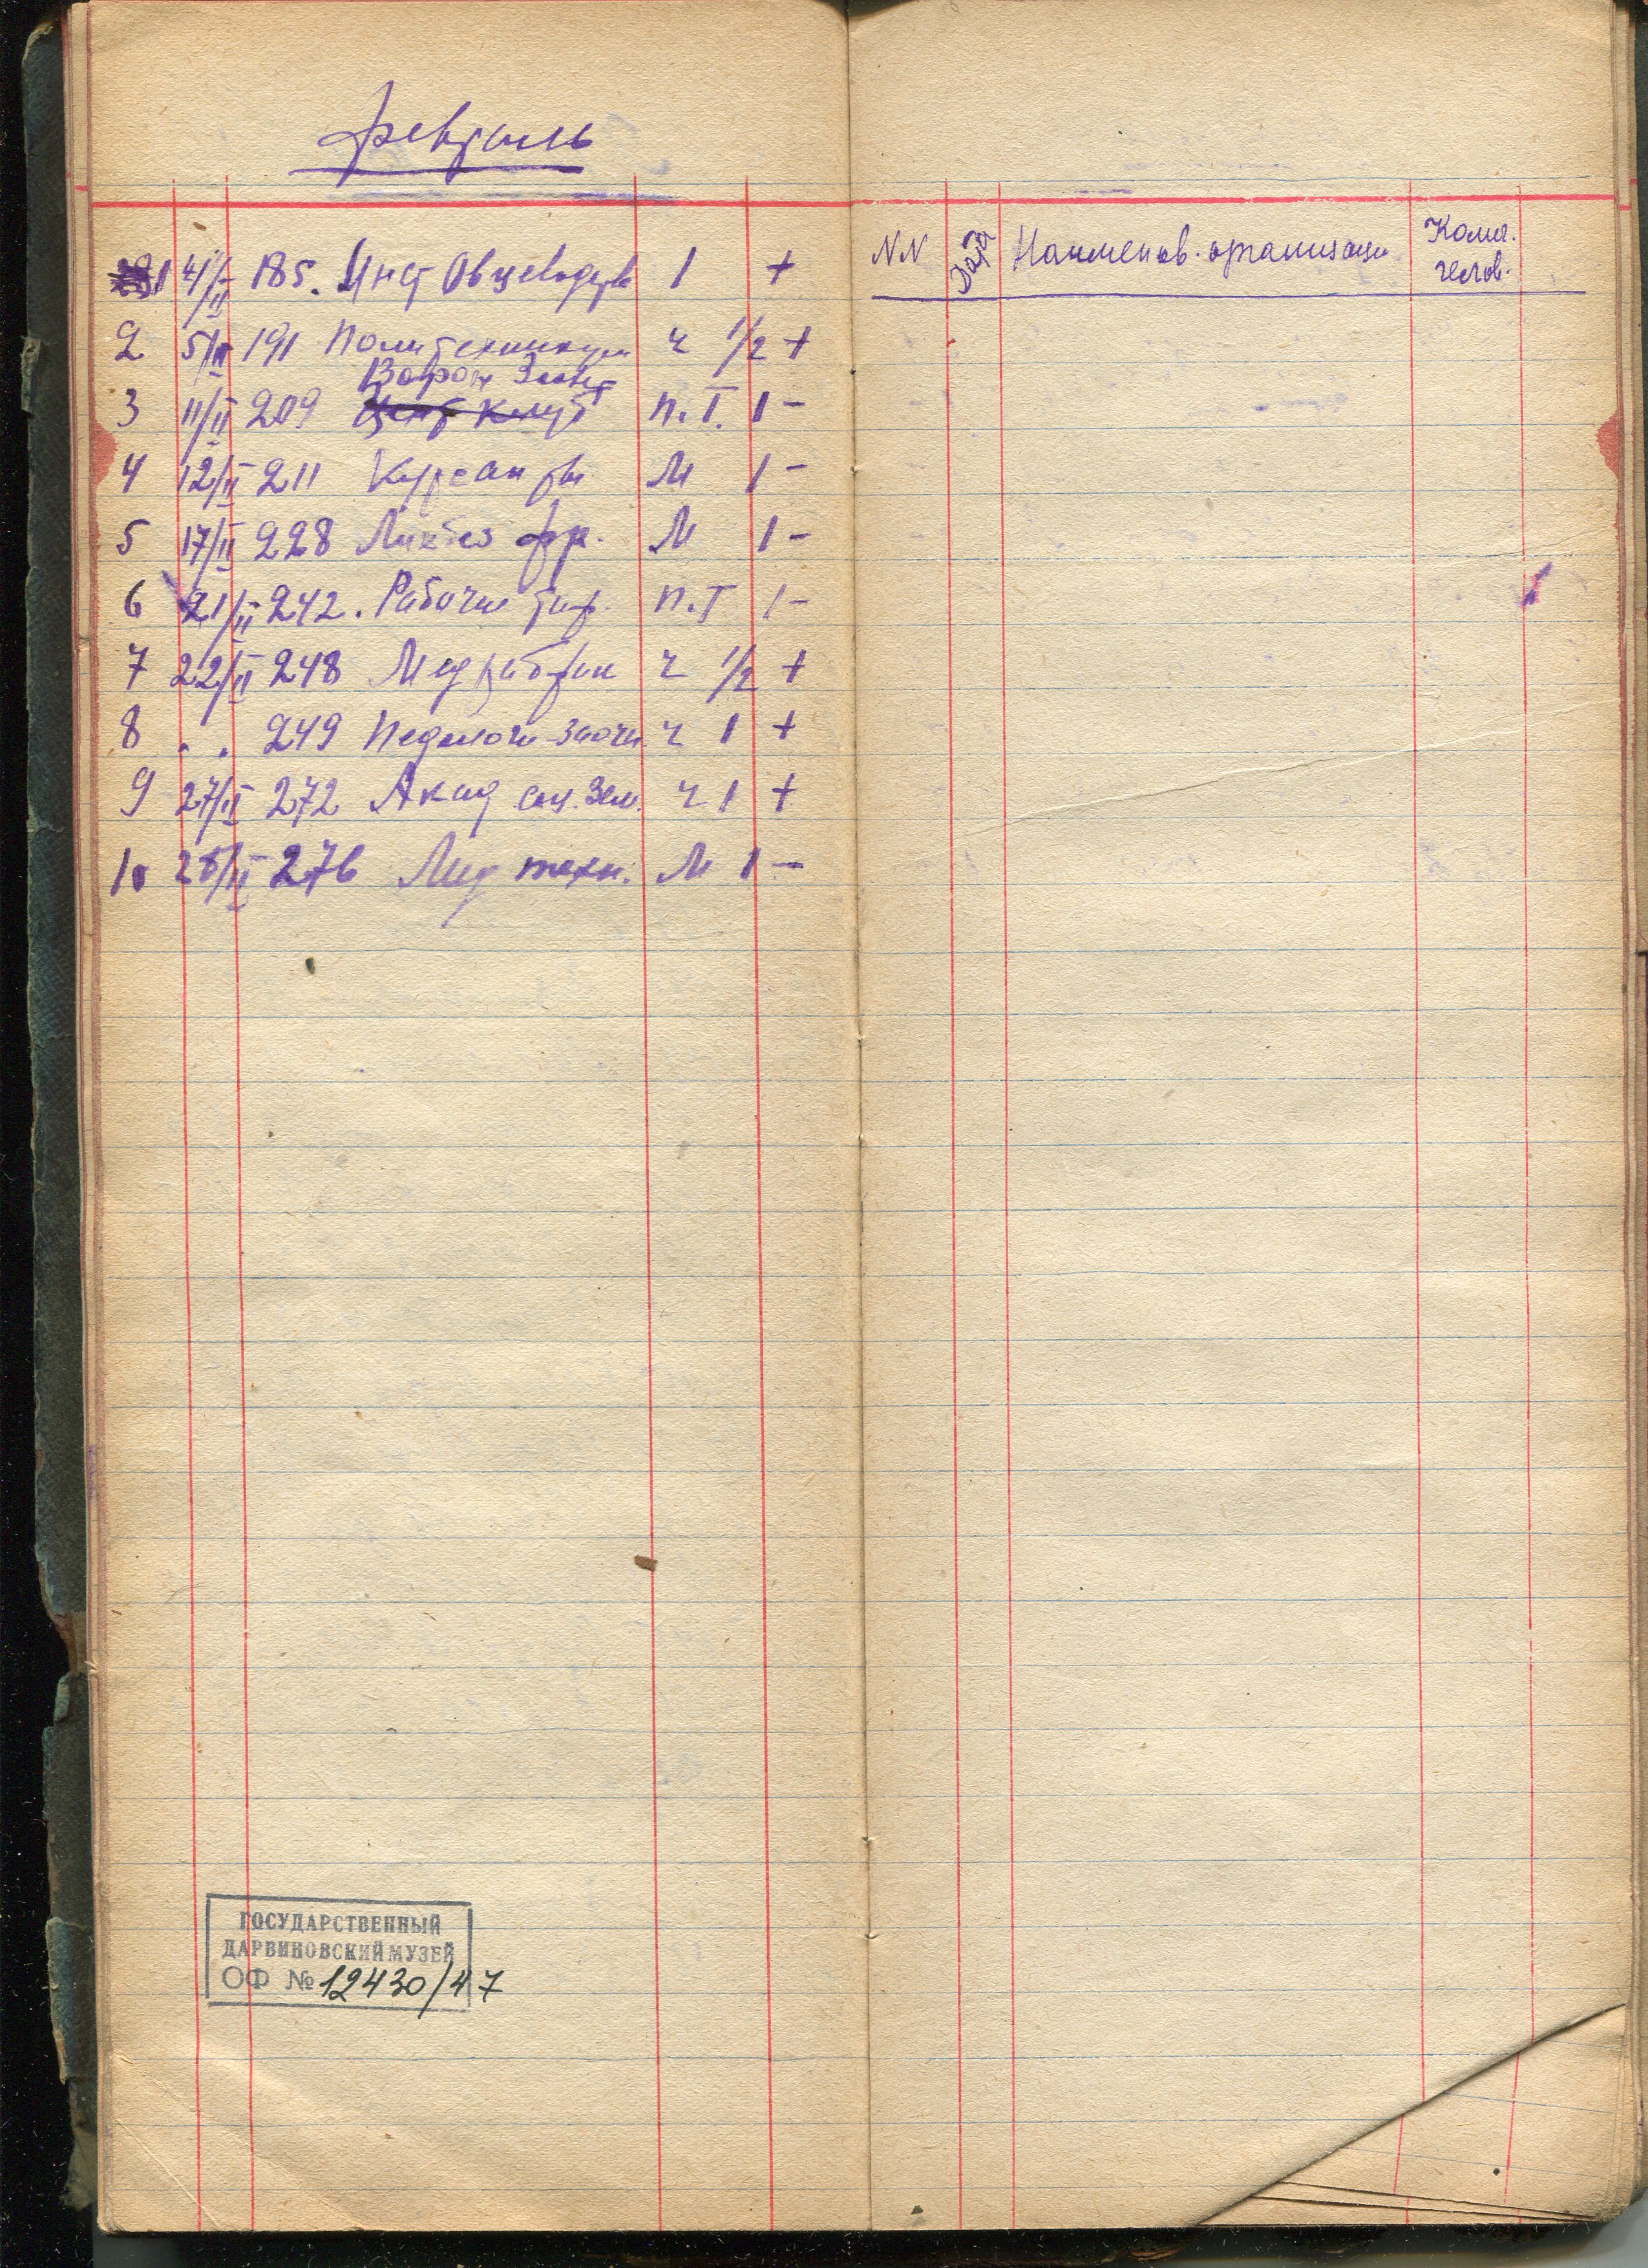 февраль
1 4/II 185. Инст Овцеводства 1 +
2 5/II 191 Политехникум ч 1/2 +
Ворон Зоовет
3 11/II 209 п.Т. 1 –
4 12/II 211 Курсанты М 1 –
5 17/II 228 Ликбез фр. М 1 –
6 21/II 242. Рабочие п.Т 1 –
7 22/II 248 Медрабфак ч 1/2 +
8 . . 249 Педологи-заочн. ч 1 +
9 27/II 272 Акад соц. Зем. ч 1 +
10 28/II 276 Мед техн. М 1 –
ГОСУДАРСТВЕННЫЙ
ДАРВИНОВСКИЙ МУЗЕЙ
ОФ № 12430/47
NN Дата Наименов. организации Колич. челов.